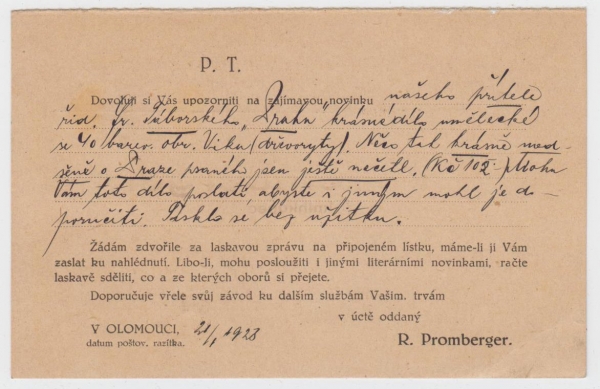 P. T.
Dovoluji si Vás upozorniti na zajímavou novinku našeho přítele
řid. Fr. Táborského „Praha" krásné dílo umělecké
se 40 barev. obr. Vika (dřevoryty). Něco tak krásně
o Praze psaného jsem ještě nečetl. (Kč 102.-) Mohu
Vám toto dílo poslati, abyste i jiným mohl je do-
poručiti. Tisklo se bez užitku.
Žádám zdvořile za laskavou zprávu na připojeném lístku, máme-li ji Vám
zaslat ku nahlédnutí. Libo-li, mohu posloužiti i jinými literárními novinkami, račte
laskavě sděliti, co a ze kterých oborů si přejete.
Doporučuje vřele svůj závod ku dalším službám Vašim. trvám
v úctě oddaný
V OLOMOUCI, 21/1 1928
datum poštov. razítka.
R. Promberger.